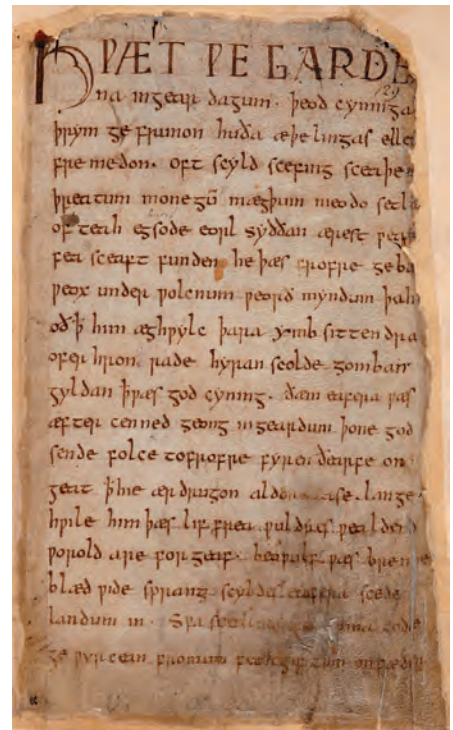 HǷÆT ǷE GARDE
na ingear dagum. þeod cyninga
þrym ge frunon huða æþelingas elle
fre medon. oft scyld scefing sceaþe
þreatum monegū mægþum meodo setla
of teah egsode eorl syððan ærest ƿear
fea sceaft funden he þæs frofre geba
ƿeox under ƿolcnum ƿeorð myndum þah
oð ꝥ him æghƿylc þara ymb sittendra
ofer hron rade hyran scolde gomban
gyldan ꝥ ƿæs god cyning. ðæm eafera ƿæs
æfter cenned geong ingeardum þone god
sende folce tofrofre fyren ðearfe on
geat ꝥ hie ær drugon aldor ase. lange
hƿile him þæs lif frea ƿuldres ƿealdend
ƿorold are for geaf. beoƿulf ƿæs breme
blæd ƿide sprang scyldes eafera scede
landum in. Sƿa guma gode
ge ƿyrcean fromum feohgiftum on fæder